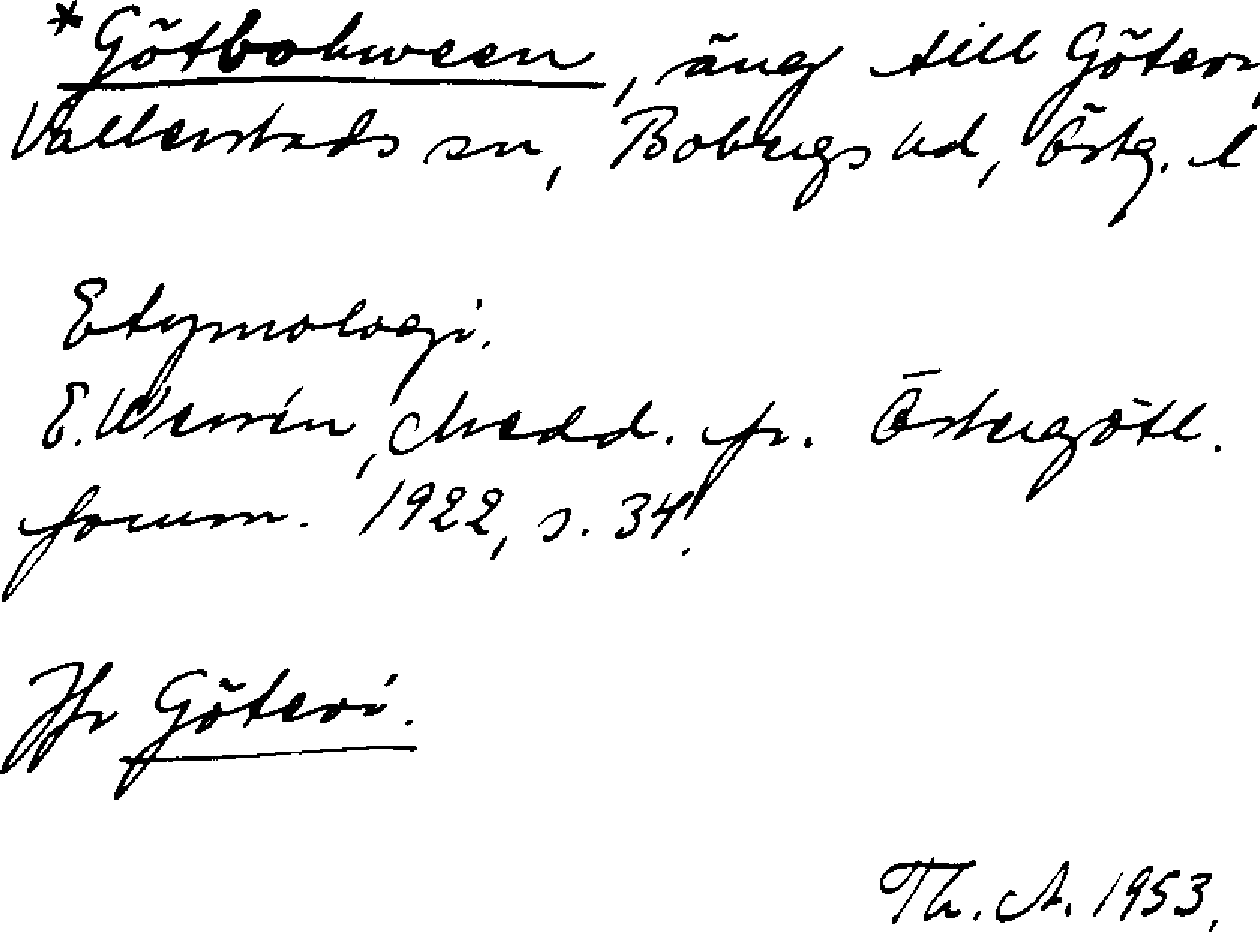 *Götbokween, äng till Göteri,
Vallerstads sn, Bobergs hd, Östg. l
Etymologi.
E. Wessén, Medd. fr. Östergötl.
fornm. 1922, s. 34.
Jfr Göteri.
Th. A. 1953.